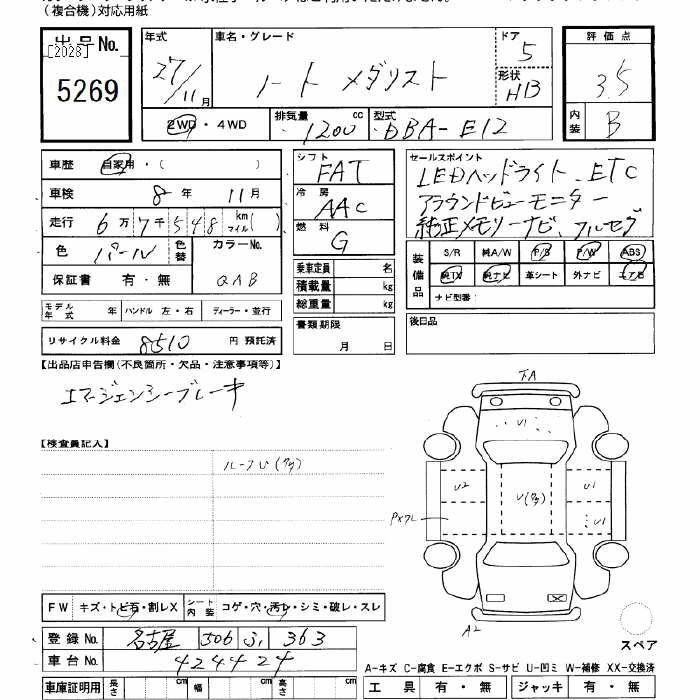 (複合機)対応用紙
出品No.
[2028]
5269
年式 27/11月
車名・グレード ノート メダリスト
ドア 5
形状 HB
2WD・4WD
排気量 1200 cc
型式 DBA-E12
評価点 3.5
内装 B
車歴 自家用・( )
車検 8年 11月
走行 6万7千548 km マイル( )
色 パール
色替
カラーNo. QAB
保証書 有・無
モデル年式 年
ハンドル 左・右
ディーラー・並行
リサイクル料金 8510円 預託済
シフト FAT
冷房 AAC
燃料 G
乗車定員 名
積載量 kg
総重量 kg
書類期限 月 日
セールスポイント
LEDヘッドライト、ETC
アラウンドビューモニター
純正メモリーナビ、フルセグ
装備品
S/R 純A/W P/S P/W ABS
純TX 純ナビ 革シート 外ナビ エアB
ナビ型番:
後日品
【出品店申告欄(不良箇所・欠品・注意事項等)】
エマージェンシーブレーキ
【検査員記入】
ルーフU(多)
FW キズ・トビ石・割レX
シート内装 コゲ・穴・汚レ・シミ・破レ・スレ
登録No. 名古屋 506 ふ 363
車台No. 424424
車庫証明用 長さ cm 幅 cm 高さ cm
U1
U2
U(多)
U1
U1
A2
スペア
A-キズ C-腐食 E-エクボ S-サビ U-凹ミ W-補修 XX-交換済
工具 有・無
ジャッキ 有・無